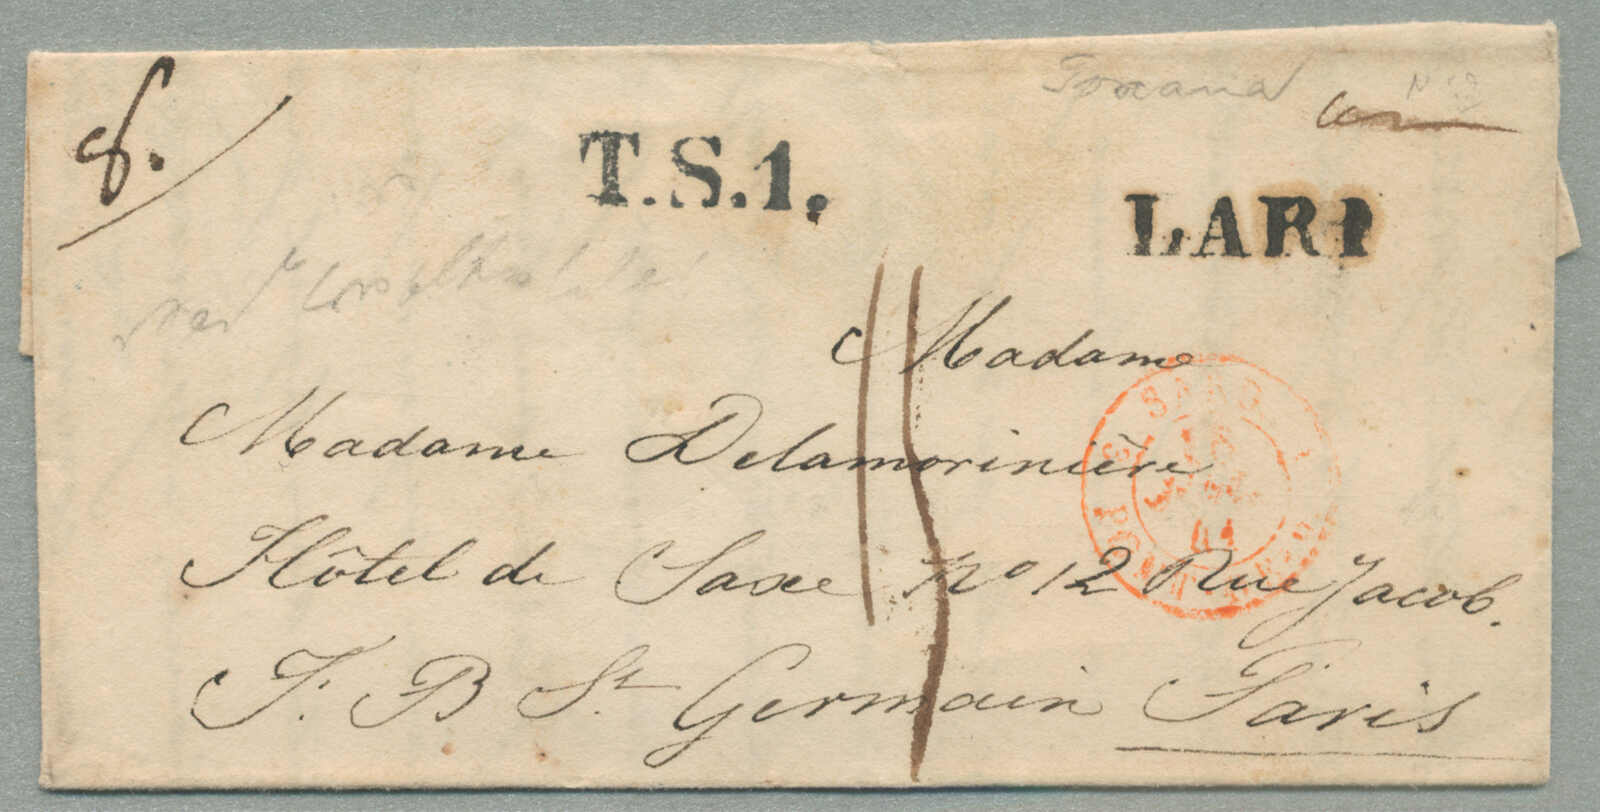 8.
Toscana
T.S.1.
LARI
Madame
Madame Delamorinière
15
Hôtel de Saxe No 12 Rue Jacob.
F. B St. Germain Paris
41